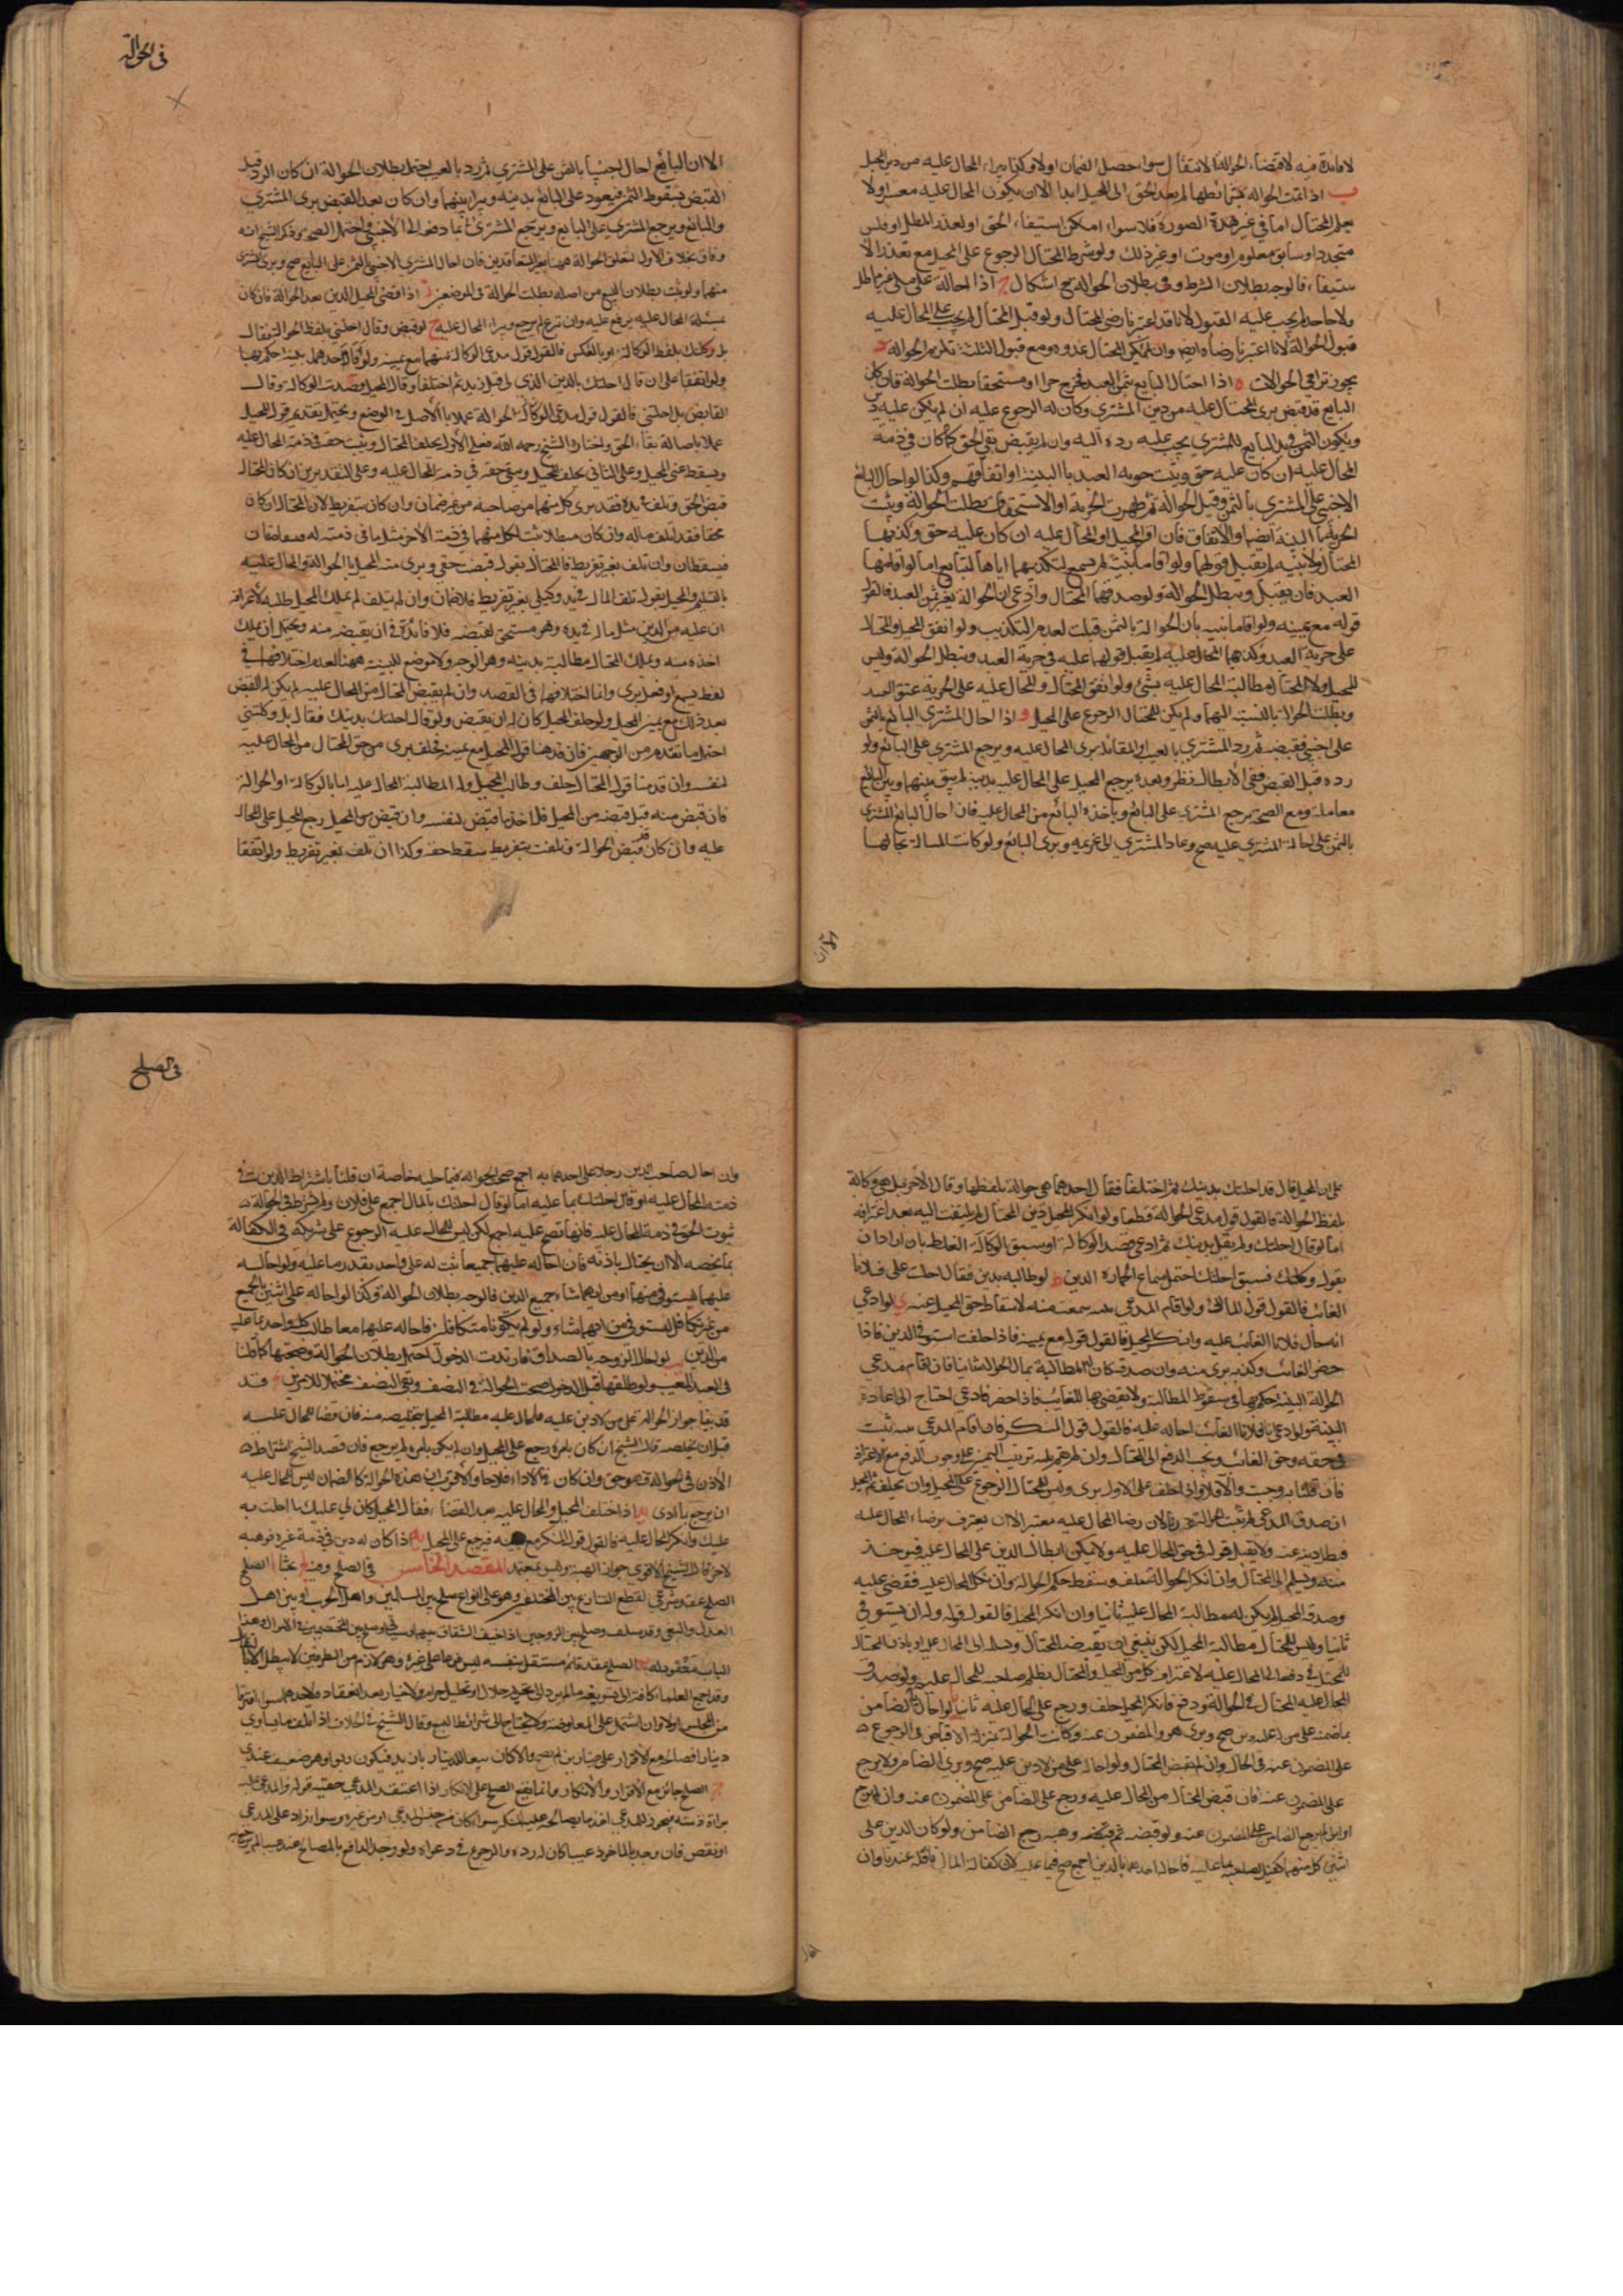 لا فائدة فيه لاقتضاء الحوالة الانتقال سواء حصل الضمان اولا وكذا يبراء المحال عليه من دين المحيل
ب اذا تمت الحوالة بشرائطها لم يعد الحق الى المحيل ابدا الا ان يكون المحال عليه معسرا ولا
يعلم المحتال اما في غير هذة الصورة فلا سواء امكن استيفاء الحق او تعذر لمطل او فلس
متجدد او سابق معلوم او موت او غير ذلك ولو شرط المحتال الرجوع على المحيل مع تعذر الا
ستيفاء فالوجه بطلان الشرط وفي بطلان الحوالة ح اشكال ج اذا احاله على ملى غير مماطل
ولا جاحد لم يجب عليه القبول لانا قد اعتبرنا رضى المحتال ولو قبل المحتال لم يجب على المحال عليه
قبول الحوالة لانا اعتبرنا رضاه ايضا وان لم يكن المحتال عدوه ومع قبول الثلثة تلزم الحوالة د
يجوز ترامى الحوالات ه اذا احتال البايع بثمن العبد فخرج حرا او مستحقا بطلت الحوالة فان كان
البايع قد قبض برى المحتال عليه من دين المشتري وكان له الرجوع عليه ان لم يكن عليه دين
ويكون الثمن في يد البايع للمشتري يجب عليه رده اليه وان لم يقبض بقى الحق كما كان في ذمة
المحال عليه ان كان عليه حق ويثبت حرية العبد باالبينة او اتفاقهم وكذا لو احال البايع
الاجنبي على المشتري بالثمن وقبل الحوالة ثم ظهرت الحرية او الاستحقاق بطلت الحوالة ويثبت
الحرية بالبينة ايضا والاتفاق فان اقر المحيل والمحال عليه ان كان عليه حق وكذبهما
المحتال ولا بينة لم يقبل قولهما ولو اقاما بينة لم تسمع لتكذيبهما اياها لتبايع اما لو اقامها
العبد فان يقبل ويبطل الحوالة ولو صدقهما المحتال وادعى ان الحوالة بغير ثمن العبد فالقول
قوله مع يمينه ولو اقاما بينة بان الحوالة بالثمن قبلت لعدم التكذيب ولو اتفق المحيل والمحتال
على حرية العبد وكذبهما المحال عليه لم يقبل قولهما عليه في حرية العبد وتبطل الحوالة وليس
للمحيل ولا المحتال مطالبة المحال عليه بشئ ولو اتفق المحتال والمحال عليه على الحرية عتق العبد
وبطلت الحوالة بالنسبة اليهما ولم يكن للمحتال الرجوع على المحيل و اذا احال المشتري البائع بالثمن
على اجنبي فقبضه ثم رد المشتري بالعيب او المقائلة برى المحال عليه ويرجع المشتري على البائع ولو
رده قبل القبض ففي الابطال نظر وبعده يرجع المحيل على المحال عليه بدينه لم يبق بينهما وبين البائع
معاملة ومع الصحة يرجع المشترى على البائع ويأخذه البائع من المحال عليه فان احال البائع المشترى
بالثمن على احالة المشتري عليه صح وعاد المشتري الى غريمه وبرى البائع ولو كانت المسالة بحالها
في الحوالة
الا ان البائع احال اجنبيا بالثمن على المشتري ثم رد بالعيب احتمل بطلان الحوالة ان كان الرد قبل
القبض لسقوط الثمن فيعود على البائع بدينه ويبرا بينهما وان كان بعد القبض برى المشتري
والبائع ويرجع المشترى على البايع ويرجع المشترى بما دفعه الى الاجنبي واحتمل الصحة وذكر الشيخ انه
وفاق بخلاف الاول لتعلق الحوالة ههنا بغير المتعاقدين فان احال المشتري الاجنبي بالثمن على البائع صح وبرى المشترى
منهما ولو ثبت بطلان البيع من اصله بطلت الحوالة في الموضعين ز اذا قضى المحيل الدين بعد الحوالة فان كان
بمسئلة المحال عليه يرجع عليه وان تبرع لم يرجع ويبراء المحال عليه ح لو قبض وقال احلتني بلفظ الحوالة فقال
بل وكلتك بلفظ الوكالة او بالعكس فالقول قول مدعى الوكالة منهما مع يمينه ولو اقام احدهما بينة حكم بها
ولو اتفقا على ان قال احلتك بالدين الذى لى قبل زيد ثم اختلفا وقال المحيل قصدت الوكالة وقال
القابض بل احلتنى فالقول قول مدعى الوكالة الحوالة عملا بالاصل في الوضع ويحتمل تقديم قول المحيل
عملا باصالة بقاء الحق واختاره الشيخ رحمه الله فعلى الاول يحلف المحتال ويثبت حقه في ذمة المحال عليه
ويسقط عنى المحيل وعلى الثاني يحلف المحيل ويبقى حقه في ذمة المحال عليه وعلى التقديرين ان كان المحتال
قبض الحق وتلف في يده فقد برى كل منهما من صاحبه من غير ضمان وان كان بتفريط لان المحتال ان كان
محقا فقد اتلف ماله وان كان مبطلا يثبت لكل منهما في ذمة الاخر مثل ما في ذمته له فيتقاصان
فيسقطان وان تلف بغير تفريط فالمحتال يقول قبضت حقي وبرى منه المحيل باالحوالة والمحال عليه
بالتسليم والمحيل يقول تلف المال في يد وكيلى بغير تفريط فلا ضمان وان لم يتلف لم يملك المحيل طلبه لاعترافه
ان عليه من الدين مثل ماله في يده وهو مستحق لقبضه فلا فائدة في ان يقبضه منه ويحتمل ان يملك
اخذه منه ويملك المحتال مطالبته بدينه وهو الوجه ولا موضع للبينة ههنا لعدم اختلافهما في
لفظ يسمع او فعل يرى وانما اختلافهما في القصد وان لم يقبض المحتال من المحال عليه لم يكن له القبض
بعد ذلك مع يمين المحيل ولو حلف المحيل كان له ان يقبض ولو قال احلتك بدينك فقال بل وكلتني
احتمل ما تقدم من الوجهين فان قدمنا قول المحيل مع يمينه فحلف برى من حق المحتال من المحال عليه
لنفسه وان قدمنا قول المحتال حلف وطالب المحيل وله المطالبة المحال عليه اما بالوكالة او الحوالة
فان قبض منه قبل قبضه من المحيل فله اخذ ما قبض لنفسه وان قبض من المحيل رجع المحيل على المحال
عليه وان كان قد قبض الحوالة فتلفت بتفريط سقط حقه وكذا ان تلف بغير تفريط ولو اتفقا
على ان المحيل قال قد احلتك بدينك ثم اختلفا فقال احدهما هي حوالة بلفظها وقال الاخر بل هي وكالة
بلفظ الحوالة فالقول قول مدعى الحوالة قطعا ولو انكر المحيل دين المحتال لم يلتفت اليه بعد اعترافه
اما لو قال احلتك ولم يقل بدينك ثم ادعى قصد الوكالة او سبق الوكالة الغلط بان اراد ان
يقول وكلتك فسبق احلتك احتمل سماع الدين ط لو طالبه بدين فقال احلت على فلانا
الغائب فالقول قول المالك ولو اقام المدعى بينة سمعت منه لاسقاط حق المحيل عنه ي لو ادعى
انه احال فلانا الغائب عليه وانكر المحيل فالقول قوله مع يمينه فاذا حلف استوفى الدين فاذا
حضر الغائب وكذبه برى منه وان صدقه كان له المطالبة بمال الحوالة ثانيا فان اقام مدعى
الحوالة البينة حكم بها في سقوط المطالبة ولا يقضى بها للغائب فاذا حضر فادعى احتاج الى اعادة
البينة ولو ادعى ان فلانا الغائب احاله عليه فالقول قول المنكر فان اقام المدعى بينة ثبت
في حقه وحق الغائب ويجب الدفع الى المحتال وان لم يقم بينة ترتب اليمين على وجوب الدفع مع الاعتراف
فان قلنا به وجبت والا فلا واذا حلف على الاول برى وليس للمحتال الرجوع على المحيل وان نكل ثم المحيل
ان صدق المدعى لم يثبت الحوالة لان رضا المحال عليه معتبر الا ان يعترف برضاء المحال عليه
فبطل دينه عنه ولا يقبل قوله في حق المحال عليه ولا يمكن ابطال الدين على المحال عليه فيؤخذ
منه ويسلم الى المحتال وان انكر الحوالة حلف وسقط حكم الحوالة وان نكل المحال عليه فقضى عليه
وصدقه المحيل لم يكن له مطالبة المحال عليه ثانيا وان انكر المحيل فالقول قوله وله ان يستوفي
ثانيا وليس للمحتال مطالبة المحيل لكن ينبغي ان يقبضه للمحتال ويسلمه الى المحال عليه او باذن المحتال
للمحيل في دفعه الى المحال عليه لاعتراف كل من المحيل والمحتال بظلم صاحبه للمحال عليه ولو صدق
المحال عليه المحتال في الحوالة ودفع فانكر المحيل حلف ورجع على المحال عليه ثانيا يا لو احال الضامن
بما ضمنه على من له عليه دين صح وبرى هو والمضمون عنه وكانت الحوالة بمنزلة الاقباض في الرجوع
على المضمون عنه في الحال وان لم يقبض المحتال ولو احاله على من لا دين عليه صح وبرى الضامن ولا يرجع
على المضمون عنه فان قبض المحتال من المحال عليه ورجع على الضامن رجع على المضمون عنه وان لم يرجع
او ابراه لم يرجع الضامن على المضمون عنه ولو قبضه ثم وهبه رجع الضامن ولو كان الدين على
اثنين كل منهما كفيل لصاحبه بما عليه فاحاله احدهما بالدين اجمع صح فيما عليه لان كفالة المال ناقلة عندنا وان
في الصلح
وان احال صاحب الدين رجلا على احدهما به اجمع صحت الحوالة فيما عليه خاصة ان قلنا باشتراط الدين في
ذمة المحال عليه لو قال احلتك بما عليه اما لو قال احلتك بالمال اجمع على فلان ولم نشترط في الحوالة
ثبوت الحق في ذمة المحال عليه فانها تصح عليه اجمع لكن ليس للمحال عليه الرجوع على شريكه في الكفالة
بما يخصه الا ان يحتال باذنه فان احاله عليهما جميعا ثبت له على واحد بقدر ما عليه ولو احاله
عليهما ليستوفى منهما او من ايهما شاء جميع الدين فالوجه بطلان الحوالة وكذا لو احاله على اثنين بالجميع
من غير تكافل ليستوفى من ايهما شاء ولو لم يكونا متكافلين فاحاله عليهما معا طالب كل واحد بما عليه
من الدين يب لو احال الزوجة بالصداق فارتدت الدخول احتمل بطلان الحوالة وصحتها كما قلنا
في العبد المعيب ولو طلقها قبل الدخول صحت الحوالة في النصف وبقى النصف محتملا للامرين يج قد
قد بينا جواز الحوالة على من لا دين عليه فللمحال عليه مطالبة المحيل بتخليصه منه فان قضا المحال عليه
قبل ان يخلصه قال الشيخ ان كان بامره رجع على المحيل وان لم يكن بامره لم يرجع فان قصد الشيخ اشتراط
الاذن في الحوالة فهو حق وان كان في الاداء فلا والاقرب ان هذه الحوالة كالضمان ليس للمحال عليه
ان يرجع بما ادى يد اذا اختلف المحيل والمحال عليه بعد القضاء فقال المحيل كان لي عليك ما احلت به
عليك وانكر المحال عليه فالقول قول المنكر مع يمينه فيرجع على المحيل يه اذا كان له دين في ذمة غيره فوهبه
لاخر قال الشيخ الاقوى جواز الهبة وليس بمعتمد المقصد الخامس في الصلح وفيه بحثا ا الصلح
الصلح عقد شرعى لقطع التنازع بين المختلفين وهو على انواع صلح بين المسلمين واهل الحرب وبين اهل
العدل والبغى وقد سلف وصلح بين الزوجين اذا خيف الشقاق بينهما وسياتي وصلح بين الخصمين في الاموال وهذا
الباب معقود له ب الصلح عقد قائم مستقل بنفسه ليس فرعا على غيره وهو لازم من الطرفين لا يبطل الا باتفاقهما
وقد اجمع العلماء كافة على تسويغه ما لم يرد الى تحريم حلال او تحليل حرام ولا خيار بعد انعقاده لاحدهما سواء افترقا
من المجلس اولا وان اشتمل على المعاوضة ولا يحتاج الى شرائط البيع وقال الشيخ في الخلاف اذا اتلف ما يساوي
دينار فصالحه مع الاقرار على دينارين لم يصح والا كان بيعا للدينار بدينارين فيكون ربوا وهو ضعيف عندي
ج الصلح جائز مع الاقرار والانكار وانما يصح الصلح على الانكار اذا اعتقد المدعي حقية قوله والمدعى عليه
براة ذمته فيجوز للمدعي اخذ ما يصالحه عليه المنكر سواء كان من جنس المدعي او من غيره وسواء زاد على المدعي
او نقص فان وجد بالماخوذ عيبا كان له رده والرجوع في دعواه ولو وجد الدافع بالمصالح عنه عيبا لم يرجع به